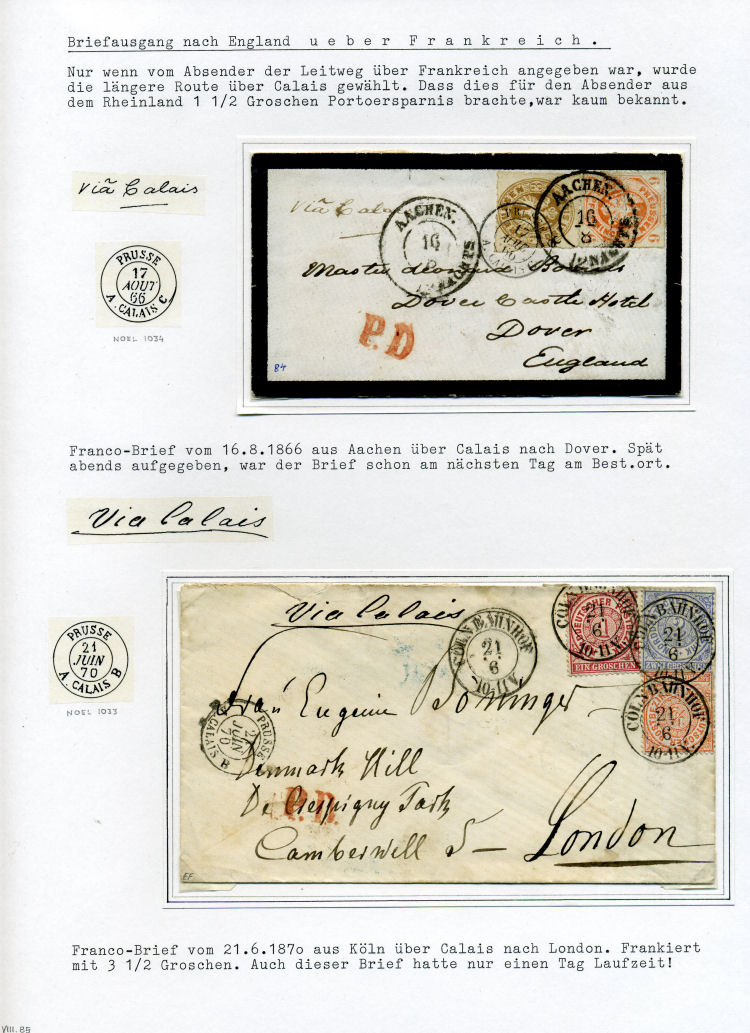 Briefausgang nach England ueber Frankreich.
Nur wenn vom Absender der Leitweg über Frankreich angegeben war, wurde
die längere Route über Calais gewählt. Dass dies für den Absender aus
dem Rheinland 1 1/2 Groschen Portoersparnis brachte,war kaum bekannt.
Viā Calais
PRUSSE
17
AOUT
66
A. CALAIS C
NOEL 1034
Viā Cala
AACHEN.
16
8
12 NACHTS
AACHEN.
16
8
12 NACHTS
Master
Dover Castle Hotel
Dover
England
P.D
84
Franco-Brief vom 16.8.1866 aus Aachen über Calais nach Dover. Spät
abends aufgegeben, war der Brief schon am nächsten Tag am Best.ort.
Via Calais
PRUSSE
21
JUIN
70
A. CALAIS B
NOEL 1033
Via Calais
CÖLN BAHNHOF
21
6
10-11 N.
21
6
10-11 N.
EIN GROSCHEN
CÖLN BAHNHOF
21
6
ZWEI GROSCHEN
CÖLN BAHNHOF
21
6
10-11 N.
PRUSSE
JUIN
70
A. CALAIS B
Eugenie
Denmark Hill
De Crespigny Park
Camberwell S—
London
P.D.
EF
Franco-Brief vom 21.6.187o aus Köln über Calais nach London. Frankiert
mit 3 1/2 Groschen. Auch dieser Brief hatte nur einen Tag Laufzeit!
VIII.85